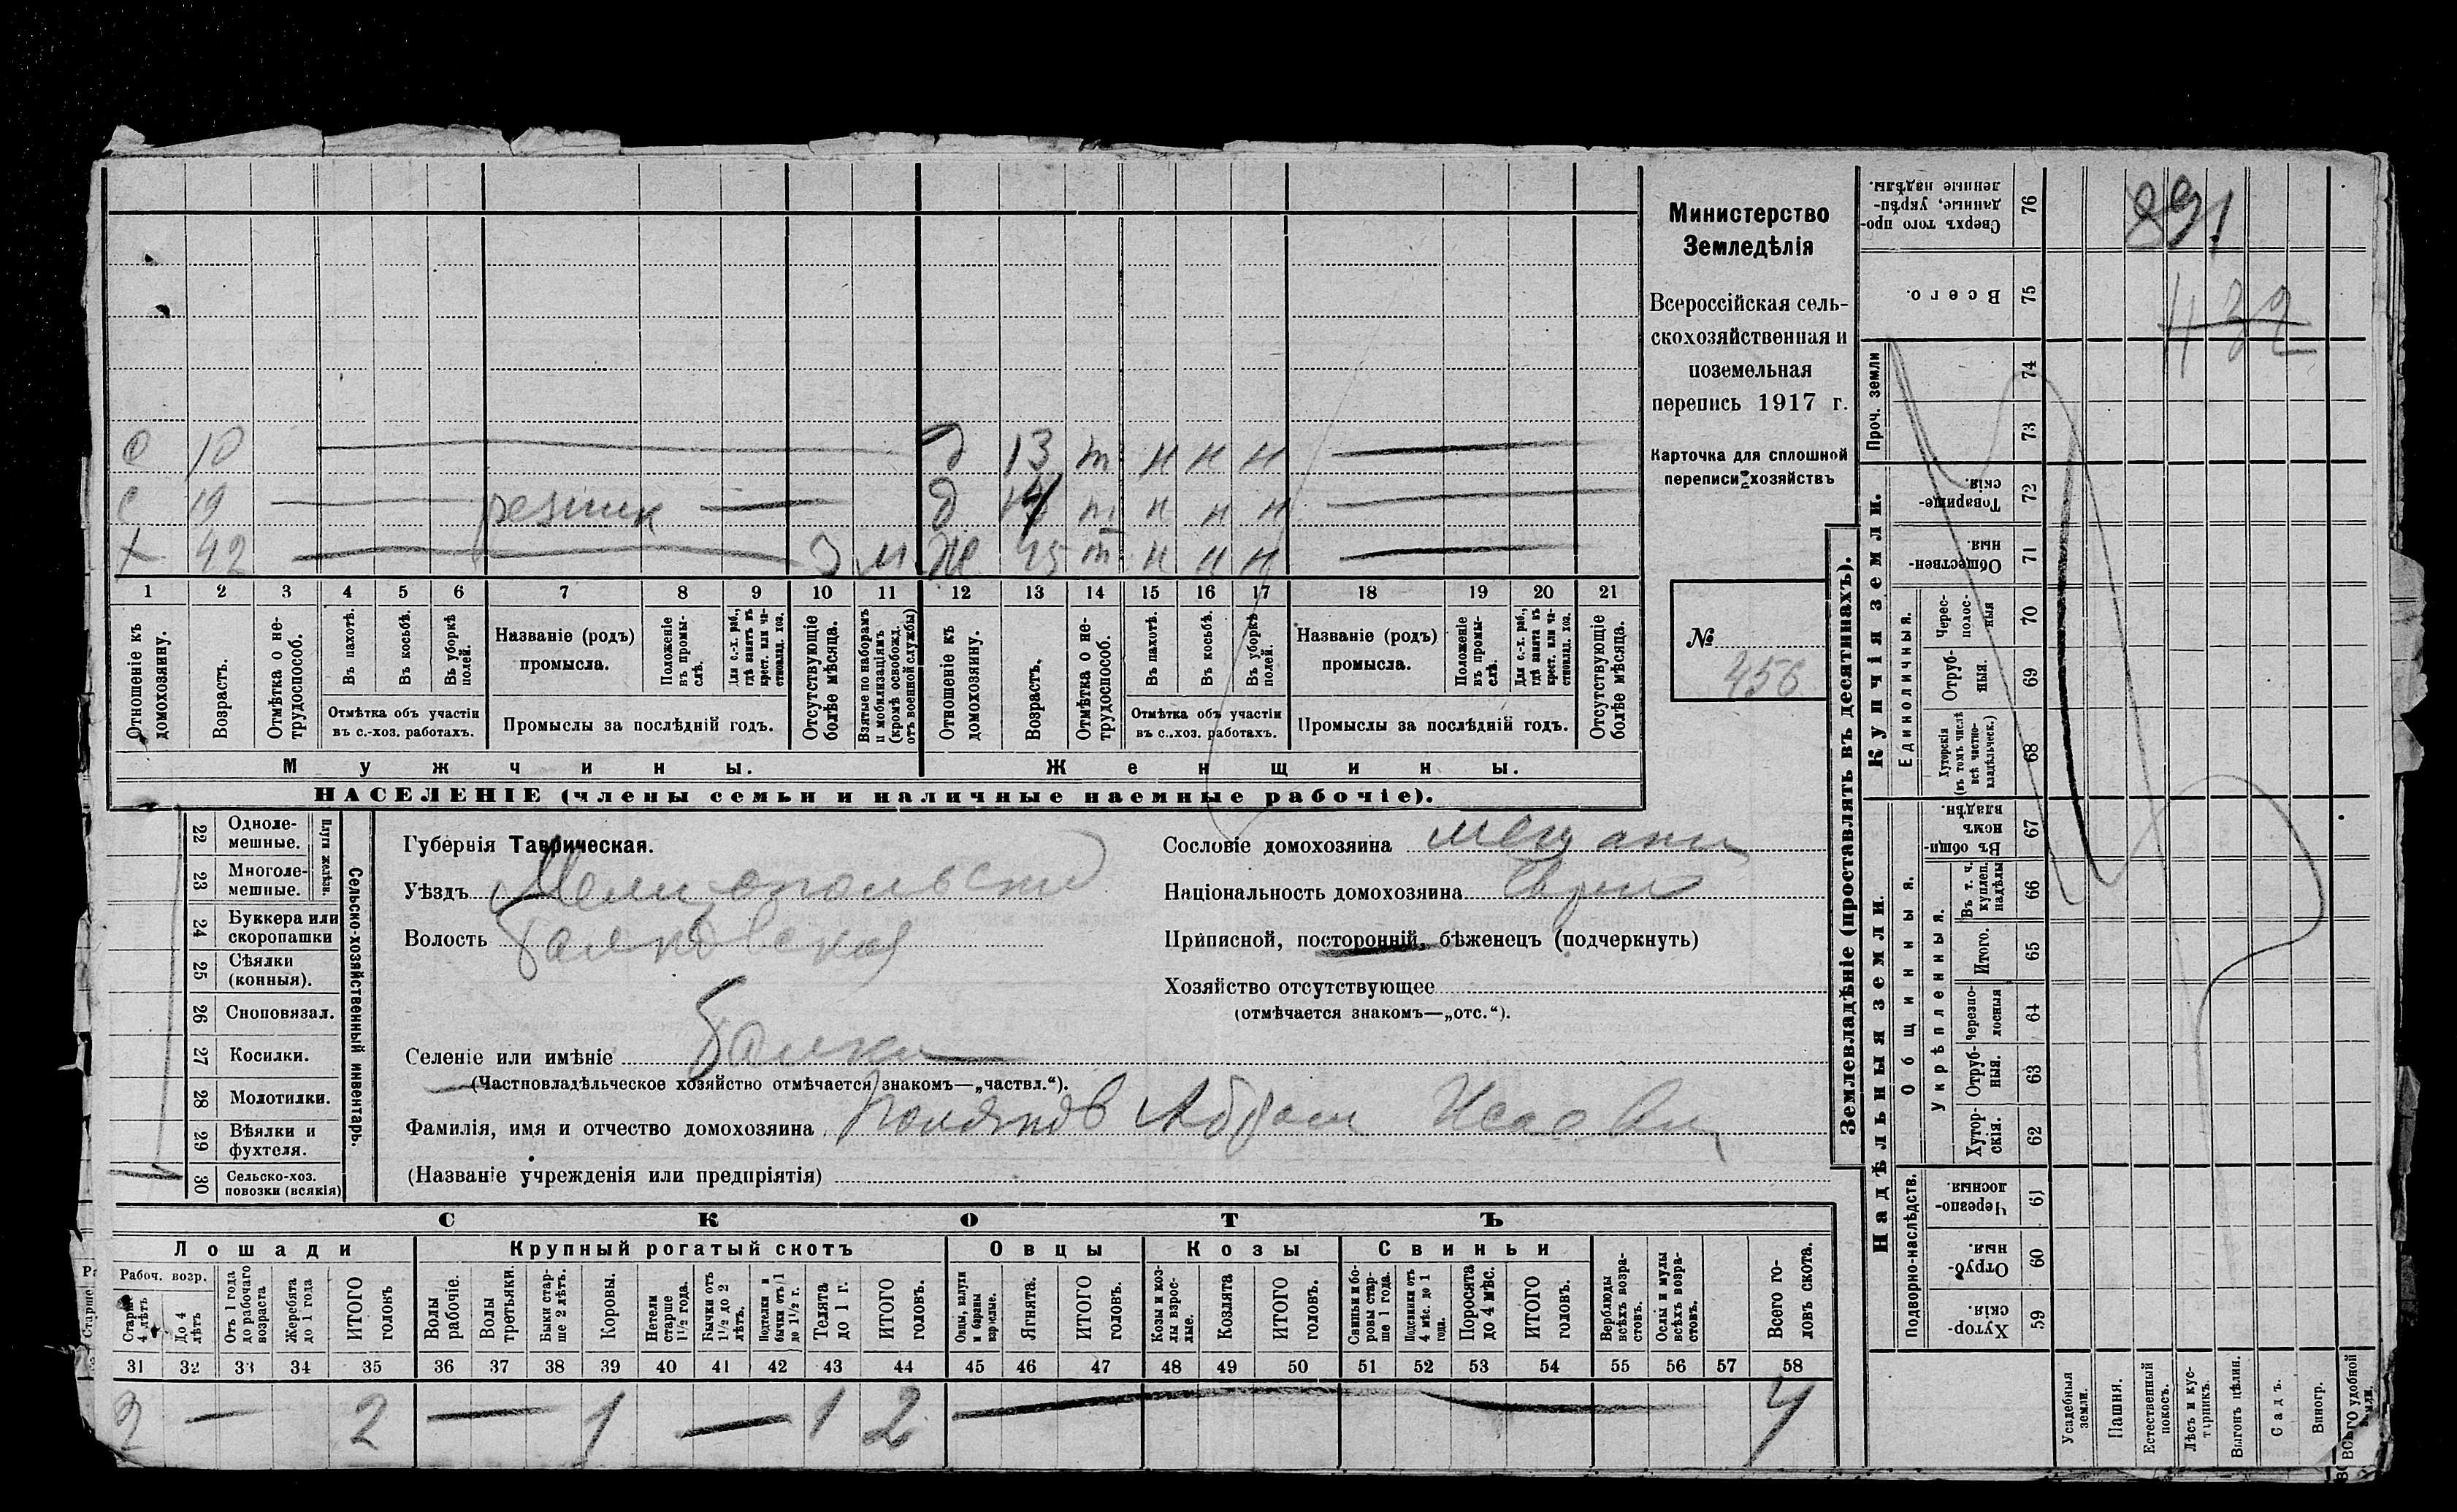 Министерство
Земледѣлія
Всероссійская сель-
скохозяйственная и
поземельная
перепись 1917 г.
Карточка для сплошной
переписи хозяйствъ
№
456
с 10 д 13 т н н н
с 19 резник д т н н н
х 42 м ж 45 т н н н
1 2 3 4 5 6 7 8 9 10 11 12 13 14 15 16 17 18 19 20 21
Отношеніе къ домохозяину.
Возрастъ.
Отмѣтка о не-трудоспособ.
Въ пахотѣ.
Въ косьбѣ.
Въ уборкѣ полей.
Отмѣтка объ участіи
въ с.-хоз. работахъ.
Названіе (родъ)
промысла.
Положеніе въ промы-слѣ.
Для с.-х. раб., гдѣ занятъ въ крест. или ча-стновлад. хоз.
Промыслы за послѣдній годъ.
Отсутствующіе болѣе мѣсяца.
Взятые по наборамъ и мобилизаціямъ (кромѣ освобожд. отъ военной службы)
Отношеніе къ домохозяину.
Возрастъ.
Отмѣтка о не-трудоспособ.
Въ пахотѣ.
Въ косьбѣ.
Въ уборкѣ полей.
Отмѣтка объ участіи
въ с.-хоз. работахъ.
Названіе (родъ)
промысла.
Положеніе въ промы-слѣ.
Для с.-х. раб., гдѣ занята въ крест. или ча-стновлад. хоз.
Промыслы за послѣдній годъ.
Отсутствующіе болѣе мѣсяца.
Мужчины.
Женщины.
НАСЕЛЕНІЕ (члены семьи и наличные наемные рабочіе).
22 Одноле-мешные.
23 Многоле-мешные.
24 Буккера или скоропашки
25 Сѣялки (конныя).
26 Сноповязал.
27 Косилки.
28 Молотилки.
29 Вѣялки и фухтеля.
30 Сельско-хоз. повозки (всякія)
Сельско-хозяйственный инвентарь.
Губернія Таврическая.
Уѣздъ Мелитопольский
Волость Балковская
Селеніе или имѣніе Балки
(Частновладѣльческое хозяйство отмѣчается знакомъ—„частвл.“).
Фамилія, имя и отчество домохозяина Поляков Абрам Исаович
(Названіе учрежденія или предпріятія)
Сословіе домохозяина мещанин
Національность домохозяина Еврей
Приписной, посторонній, бѣженецъ (подчеркнуть)
Хозяйство отсутствующее
(отмѣчается знакомъ—„отс.“).
СКОТЪ
Лошади Крупный рогатый скотъ Овцы Козы Свиньи
Рабоч. возр.
Старше 4 лѣтъ
До 4 лѣтъ
Отъ 1 года до рабочаго возраста
Жеребята до 1 года
ИТОГО головъ
Волы рабочіе.
Волы третьяки.
Быки стар-ше 2 лѣтъ.
Коровы.
Нетели старше 1½ года.
Бычки отъ 1½ до 2 лѣтъ.
Подтелки и бычки отъ 1 до 1½ г.
Телята до 1 г.
ИТОГО головъ.
Овцы, валухи и бараны взрослые.
Ягнята.
ИТОГО головъ.
Козы и коз-лы взрос-лые.
Козлята
ИТОГО головъ.
Свиньи и бо-ровы стар-ше 1 года.
Подсвинки отъ 4 мѣс. до 1 года.
Поросята до 4 мѣс.
ИТОГО головъ.
Верблюды всѣхъ возра-стовъ.
Ослы и мулы всѣхъ возра-стовъ.
Всего го-ловъ скота.
31 32 33 34 35 36 37 38 39 40 41 42 43 44 45 46 47 48 49 50 51 52 53 54 55 56 57 58
2 — 2 — 1 — 1 2 — 4
Землевладѣніе (проставлять въ десятинахъ).
Купчія земли.
Надѣльныя земли.
Проч. земли
Единоличныя.
Общинныя.
Укрѣпленныя.
Подворно-наслѣдств.
76 Сверхъ того про-данные, укрѣп-ленные надѣлы.
75 Всего.
74
73
72 Товарище-скія.
71 Обществен-ныя.
70 Черес-полос-ныя
69 Отруб-ныя.
68 Хуторскія (въ томъ числѣ всѣ частно-владѣльческ.)
67 Въ общин-номъ владѣн.
66 Въ т. ч. куплен. надѣлы
65 Итого.
64 Черезпо-лосныя
63 Отруб-ныя.
62 Хутор-скія.
61 Черезпо-лосныя.
60 Отруб-ныя.
59 Хутор-скія.
Усадебныя земли.
Пашня.
Естественный покосъ.
Лѣсъ и кус-тарникъ.
Выгонъ цѣлин.
Садъ.
Виногр.
ВСЕГО удобной земли.
891
432